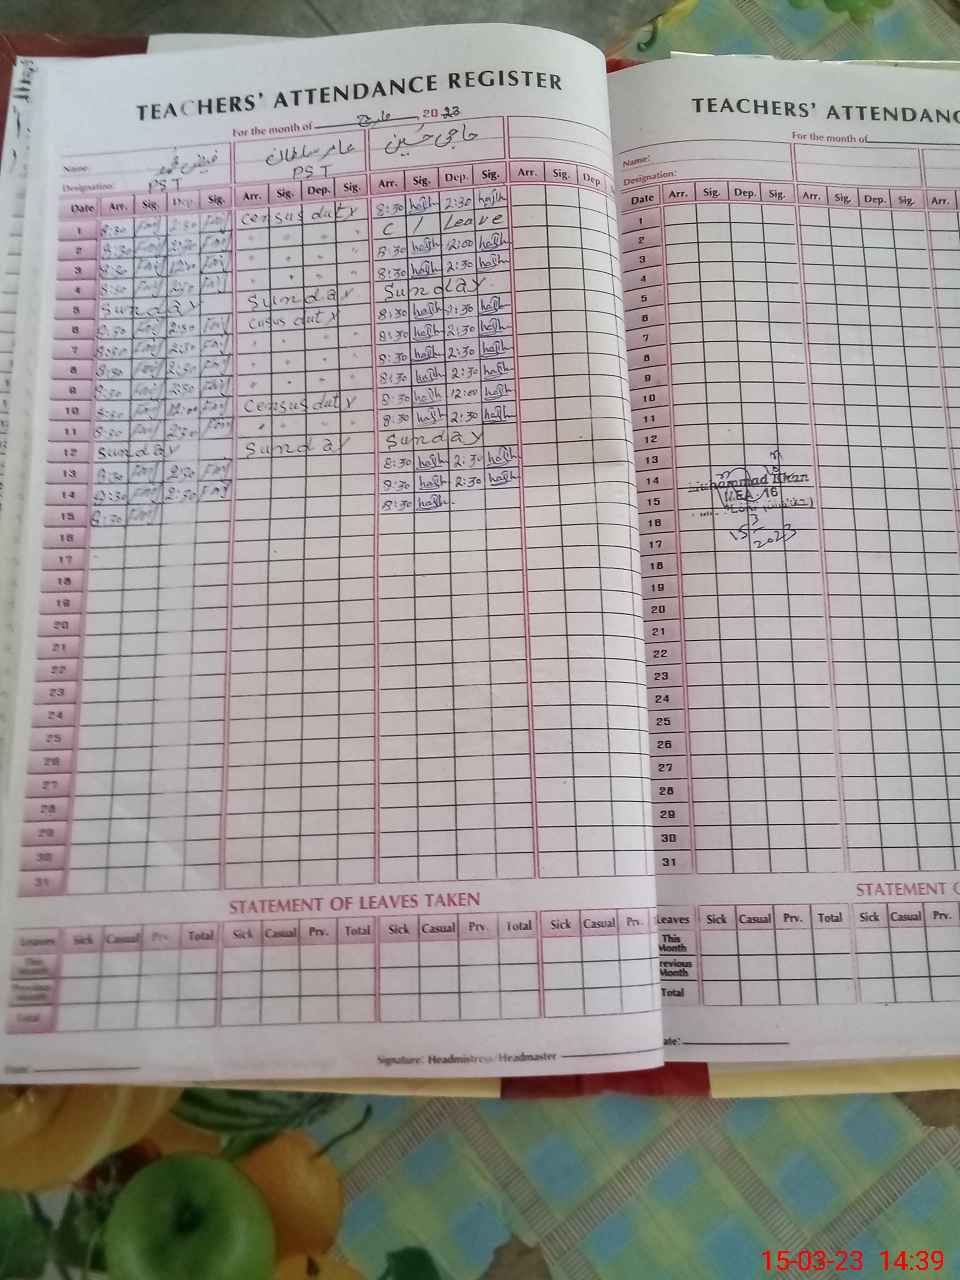 TEACHERS' ATTENDANCE REGISTER
For the month of مارچ 2023
Name: عامر سلطان حاجی حسین
Designation: PST PST
Date Arr. Sig. Dep. Sig. Arr. Sig. Dep. Sig. Arr. Sig. Dep. Sig. Arr. Sig. Dep
1 8:30 2:30 Census duty 8:30 hajih 2:30 hajih
2 8:30 2:30 " " " " C / Leave
3 8:30 12:00 " " " " 8:30 hajih 12:00 hajih
4 8:30 2:30 " " " " 8:30 hajih 2:30 hajih
5 Sunday Sunday Sunday
6 8:30 2:30 Cusus duty 8:30 hajih 2:30 hajih
7 8:30 2:30 " " " " 8:30 hajih 2:30 hajih
8 8:30 2:30 " " " " 8:30 hajih 2:30 hajih
9 8:30 2:30 " " " " 8:30 hajih 2:30 hajih
10 8:30 12:00 Census duty 8:30 hajih 12:00 hajih
11 8:30 2:30 " " " " 8:30 hajih 2:30 hajih
12 Sunday Sunday Sunday
13 8:30 2:30 8:30 hajih 2:30 hajih
14 8:30 2:30 8:30 hajih 2:30 hajih
15 8:30 8:30 hajih
16
17
18
19
20
21
22
23
24
25
26
27
28
29
30
31
STATEMENT OF LEAVES TAKEN
Leaves Sick Casual Prv. Total Sick Casual Prv. Total Sick Casual Prv. Total Sick Casual Prv.
This Month
Previous Month
Total
Date:
Signature: Headmistress/Headmaster
TEACHERS' ATTENDANC
For the month of
Name:
Designation:
Date Arr. Sig. Dep. Sig. Arr. Sig. Dep. Sig. Arr.
1
2
3
4
5
6
7
8
9
10
11
12
13
14
15
16
17
18
19
20
21
22
23
24
25
26
27
28
29
30
31
Muhammad Khan
15 3 2023
STATEMENT O
Leaves Sick Casual Prv. Total Sick Casual Prv.
This Month
revious Month
Total
ate:
15-03-23 14:39